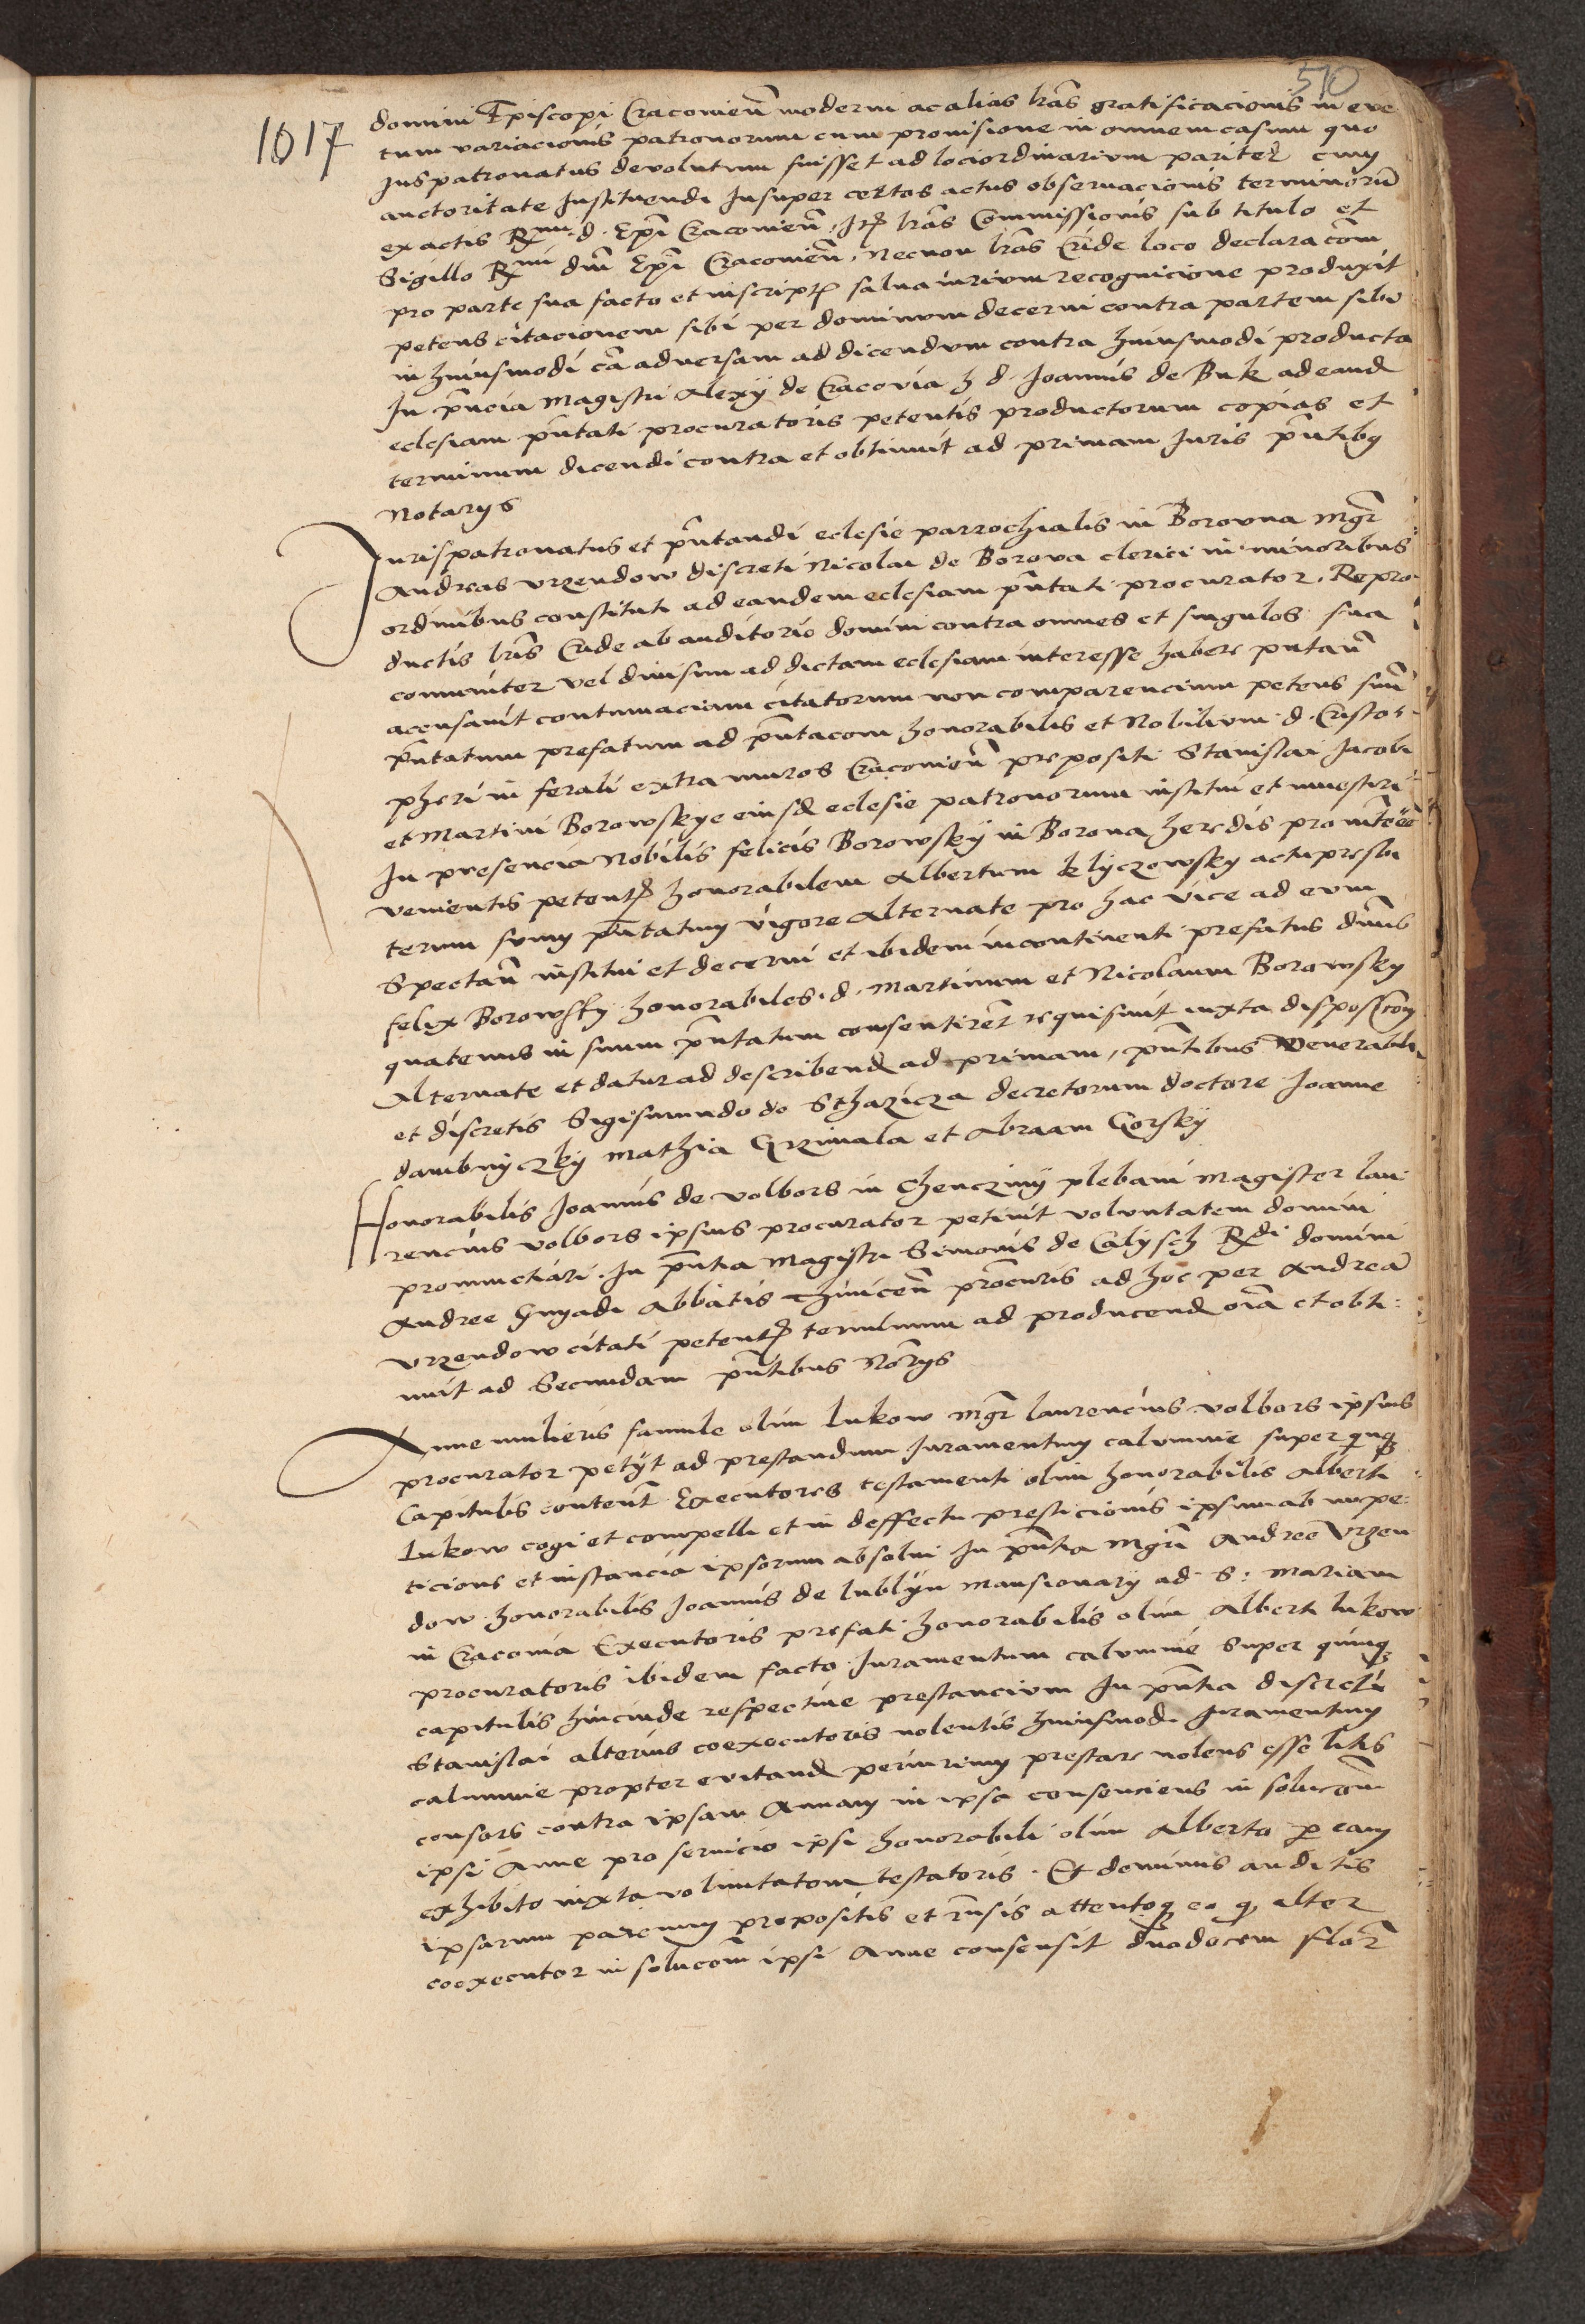 510
1017
domini Episcopi Cracovien̄ moderni ac alias l̄ras gratificacionis in eve
tum variacionis patronorum cum provisione in omnem casum quo
Juspatronatus devolutum fuisset ad loci ordinarium pariter cum
auctoritate Instituendi Insuper certos actus observacionis terminorū
ex actis R̄mi d. Ep̄i Cracovien̄. Itē l̄ras Commissionis sub titulo et
Sigillo R̄mi dn̄i Ep̄i Cracovien̄. Necnon l̄ras Cride loco declaracōm
pro parte sua facto et inscript salva iurium recognicione produxit
petens citacionem sibi per dominum decerni contra partem sibi
in huiusmodi cā adversam ad dicendum contra huiusmodi producta
In p̄ncia Magistri Alexij de Cracovia h d. Joannis de Buk ad eand
eclesiam p̄ntati procuratoris petentis productorum copias et
terminum dicendi contra et obtinuit ad primam Juris p̄ntibꝫ
Notarys
Jurispatronatus et p̄ntandi eclesie parrochialis in Borovna Mgr̄
Andreas Vrzendow discreti Nicolai de Borova clerici in minoribus
ordinibus constituti ad eandem eclesiam p̄ntati procurator. Repro
ductis l̄ris Cride ab auditorio domini contra omnes et singulos sua
comuniter vel divisim ad dictam eclesiam interesse habere putan̄
acusavit contumaciam citatorum non comparencium petens suū
p̄ntatum prefatum ad p̄ntacom honorabilis et Nobilium d. Cristo
pheri in ferali extra muros Cracovien̄ prepositi Stanislai Jacobi
et Martini Borowskye eiusd eclesie patronorum institui et investiri
In presencia Nobilis felicis Borowsky in Borova heredis pro int̄ee
venientis petent honorabilem Albertum Klyczowsky actu presbi
terum suum p̄ntatum vigore Alternate pro hac vice ad eum
Spectan̄ institui et decerni et ibidem incontinenti prefatus dn̄us
felix Borowsky honorabiles. d. Martinum et Nicolaum Borowsky
quatenus in suum p̄ntatum consentirēt requisivit iuxta disposicōm
Alternate et datur ad describend ad primam, p̄ntibus Venerabili
et discretis Sigismundo de Sthazicza decretorum doctore Joanne
dambnyczky Mathia Grzimala et Abraam Gorsky
Honorabilis Joannis de Volbors in Chencziny plebani Magister lau
rencius Volbors ipsius procurator petivit voluntatem domini
pronunctiari. In p̄ntia Magistri Simonis de Calysch R̄di domini
Andree Gnyadi Abbatis Thinicen̄ procuris ad hoc per Andreā
Vrzendow citati petent terminum ad producend oīa et obti:
nuit ad Secundam p̄ntibus No̅rys
Anne mulieris famule olim Lukow Mgr̄ laurencius Volbors ipsius
procurator petijt ad prestandum Juramentum calumnie super quinqꝫ
Capitulis conten̄t Executores testamenti olim honorabilis Alberti
Lukow cogi et compelli et in deffectu presticionis ipsum ab impe:
ticione et instancia ipsorum absolvi In p̄ntia Mgrī Andree Vrzen
dow honorabilis Joannis de lublyn Mansionarij ad S: Mariam
in Cracovia Executoris prefati honorabilis olim Alberti lukow
procuratoris ibidem facto Juramentum calumnie super quinqꝫ
capitulis hincinde respective prestancium In p̄ntia discreti
Stanislai alterius coexecutoris nolentis huiusmodi Juramentum
calumnie propter evitand periurium prestare nolens esse litis
consors contra ipsam Annam in ipsa consenciens in solucōm
ipsi Anne pro servicio ipsi honorabili olim Alberto per eam
exhibito iuxta voluntatem testatoris. Et dominus auditis
ipsarum parcium propositis et rn̄sis attentoqꝫ eo qꝫ alter
coexecutor in solucōm ipsi Anne consensit duodecem flor̄